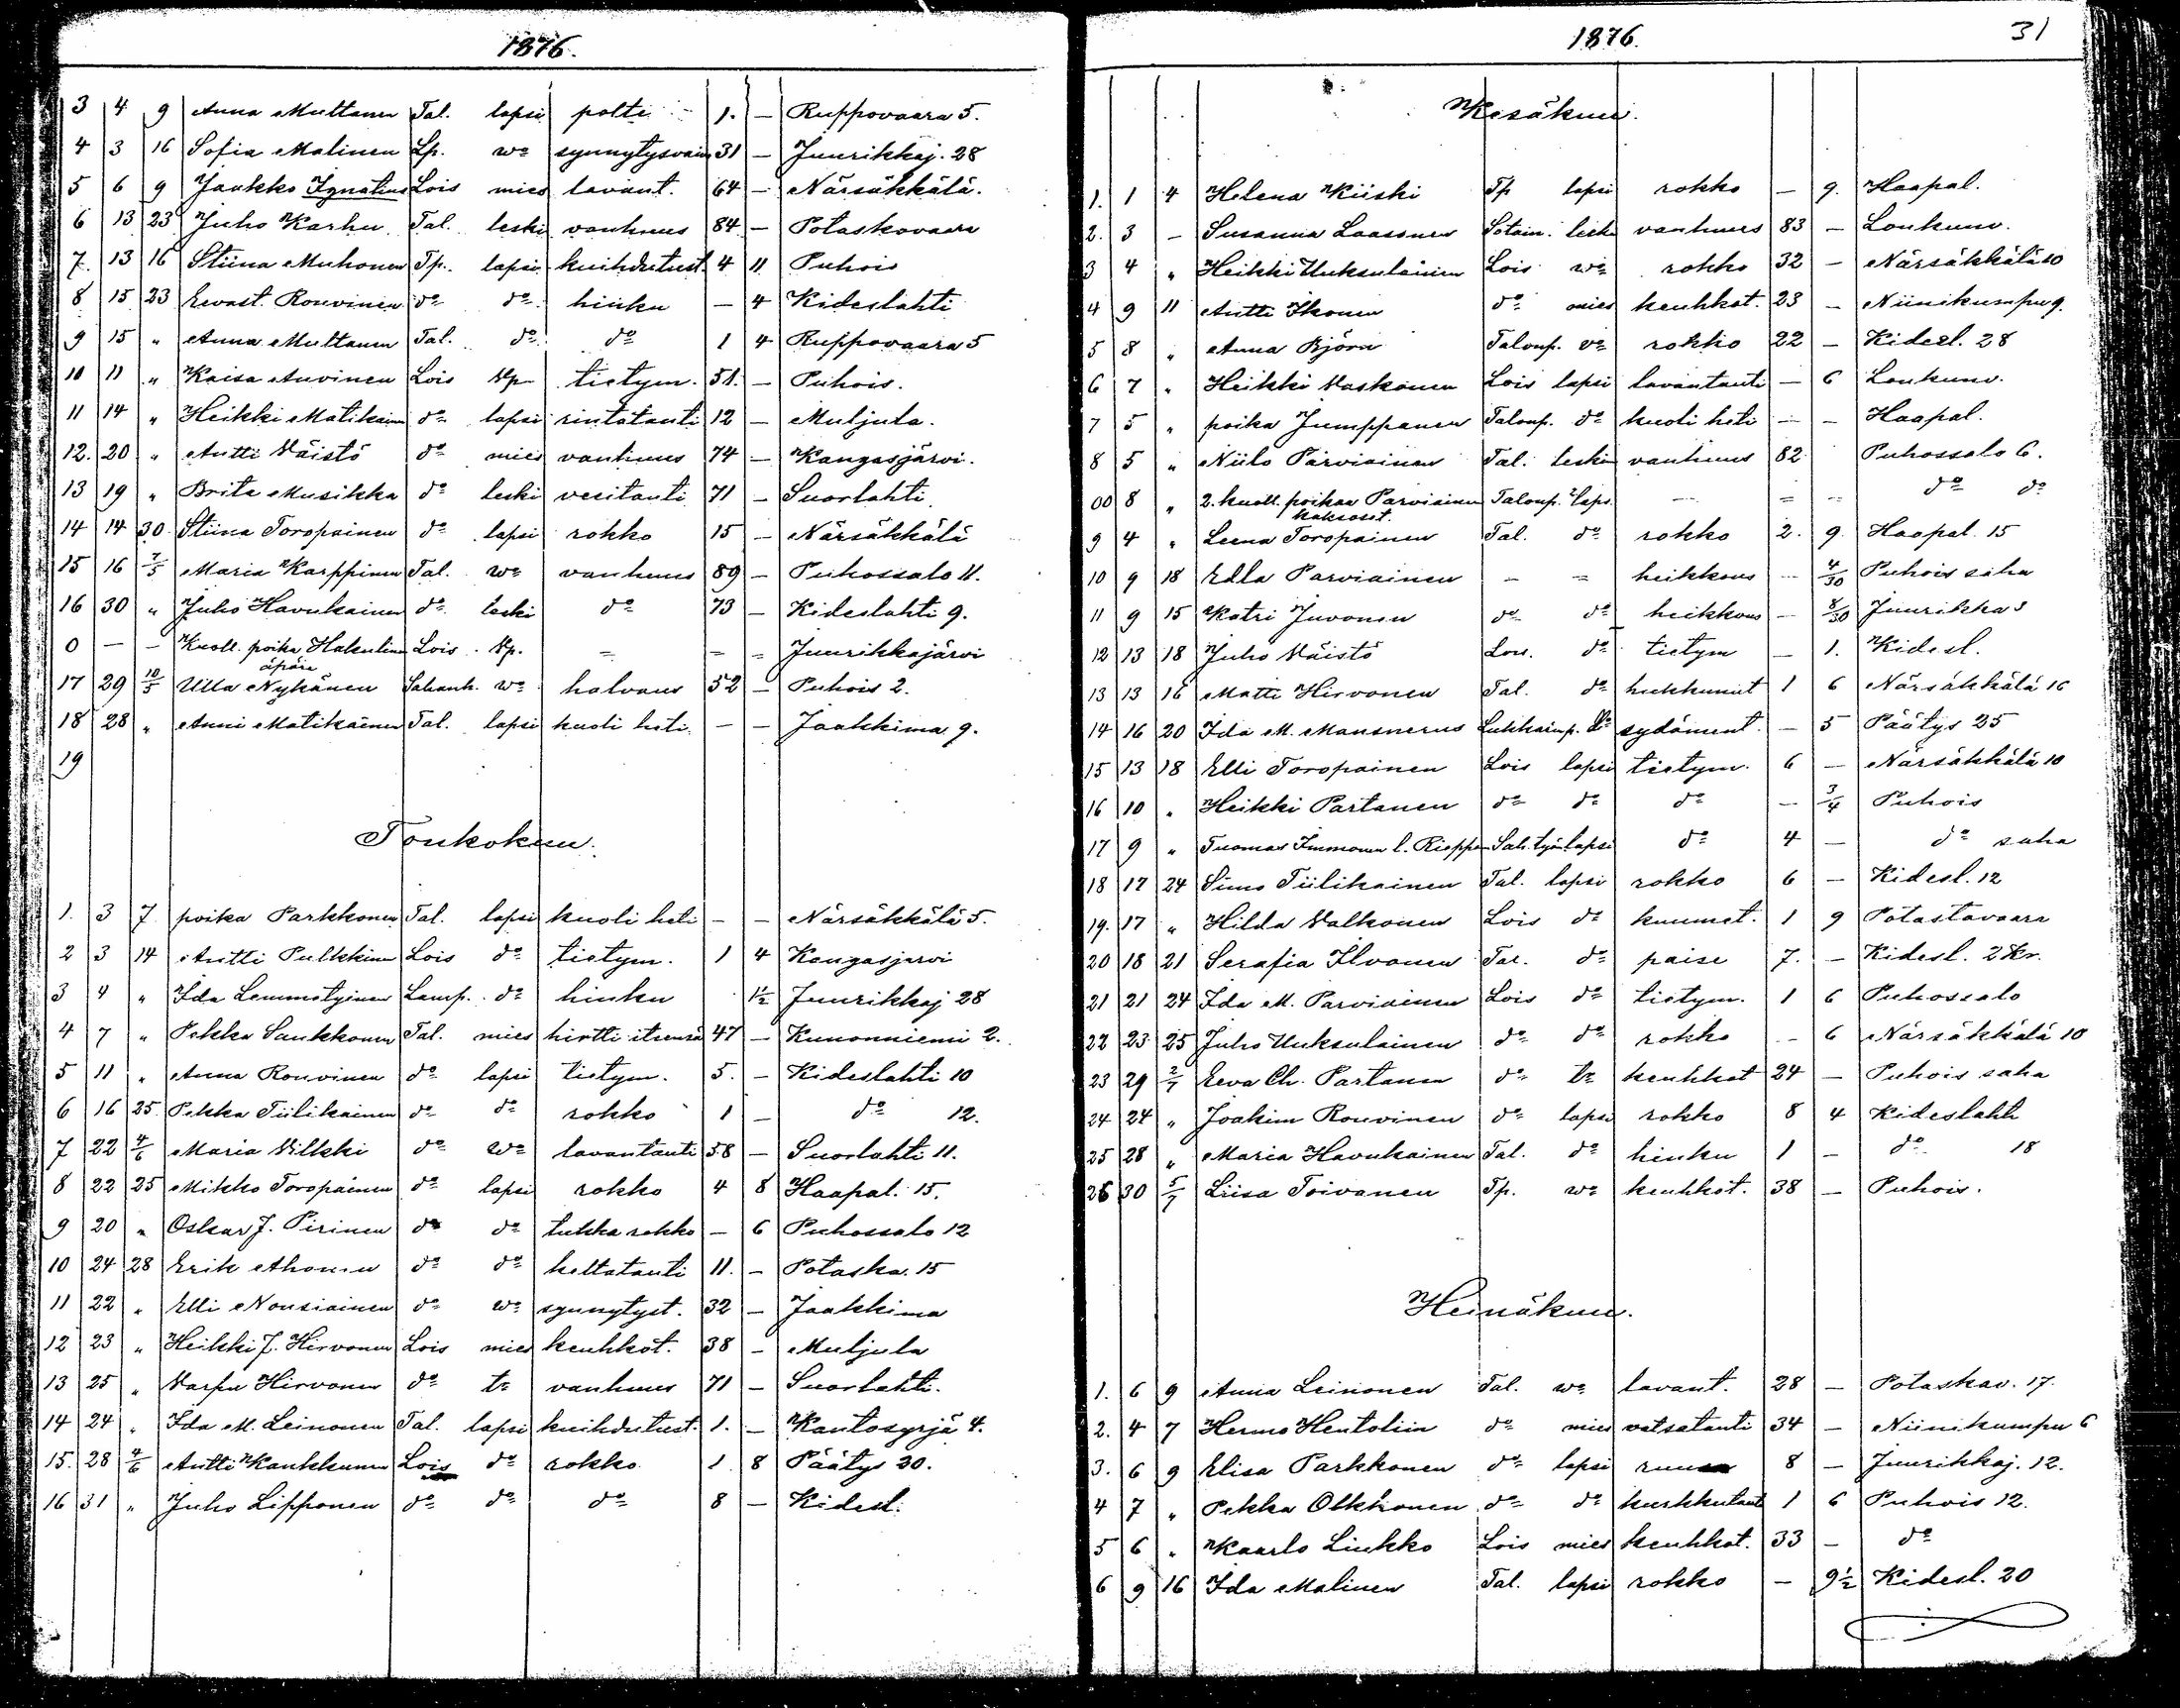 1876.
3 4 9 Anna Multanen Tal. lapsi polti 1. — Ruppovaara 5.
4 3 16 Sofia Malinen Lp. wo synnytysvaiva 31 — Juurikkaj. 28
5 6 9 Jaakko Ignatius Lois mies lavant. 64 — Närsäkkälä.
6 13 23 Juho Karhu Tal. leski vanhuus 84 — Potaskavaara
7. 13 16 Stiina Muhonen Tp. lapsi kuihdutust. 4 11 Puhois
8 15 23 Ewast. Rouvinen do do hinku — 4 Kideslahti
9 15 " Anna Multanen Tal. do do 1 4 Ruppovaara 5
10 11 " Kaisa Auvinen Lois Np tietym. 51. — Puhois.
11 14 " Heikki Matikainen do lapsi rintatauti 12 — Muljula.
12. 20 " Antti Väistö do mies vanhuus 74 — Kangasjärvi.
13 19 " Brita Musikka do leski vesitauti 71 — Suorlahti
14 14 30 Stiina Toropainen do lapsi rokko 15 — Närsäkkälä
15 16 7/5 Maria Karppinen Tal. wo vanhuus 89 — Puhossalo 11.
16 30 " Juho Havukainen do leski do 73 — Kideslahti 9.
0 — — Kuoll. poika Hakulinen Lois Np. = = = Juurikkajärvi
äpärä
17 29 10/5 Ulla Nykänen Sahanh. wo halvaus 52 — Puhois 2.
18 28 " Anni Matikainen Tal. lapsi kuoli heti — — Jaakkima 9.
19
Toukokuu.
1. 3 7 poika Parkkonen Tal. lapsi kuoli heti — — Närsäkkälä 5.
2 3 14 Antti Pulkkinen Lois do tietym. 1 4 Kangasjarvi
3 4 " Ida Lemmetyinen Lamp. do hinku 1½ Juurikkaj 28
4 7 " Pekka Saukkonen Tal. mies hirtti itsensä 47 — Kunonniemi 2.
5 11 " Anna Rouvinen do lapsi tietym. 5. — Kideslahti 10
6 16 25 Pekka Tiilikainen do do rokko 1 — do 12.
7 22 4/6 Maria Vilkki do wo lavantauti 58 — Suorlahti 11.
8 22 25 Mikko Toropainen do lapsi rokko 4 8 Haapal. 15.
9 20 " Oskar J. Pirinen do do tukka rokko — 6 Puhossalo 12
10 24 28 Erik Ahonen do do keltatauti 11. — Potaska. 15
11 22 " Elli Nousiainen do wo synnytyst. 32 — Jaakkima
12 23 " Heikki J. Hirvonen Lois mies keuhkot. 38 — Muljula
13 25 " Varpu Hirvonen do to vanhuus 71 — Suorlahti.
14 24 " Ida M. Leinonen Tal. lapsi kuihdutust. 1. — Kantosyrjä 4.
15. 28 4/6 Antti Kaukkunen Lois do rokko 1 8 Päätys 30.
16 31 " Juho Lipponen do do do 8 — Kidesl.
1876.
31
Kesäkuu.
1. 1 4 Helena Kiiski Tp lapsi rokko — 9. Haapal.
2. 3 — Susanna Laassonen Sotam. leski vanhuus 83 — Loukunv.
3 4 " Heikki Uuksulainen Lois wa rokko 32 — Närsäkkälä 10
4 9 11 Antti Ikonen do mies keuhkot. 23 — Niinikumpu 9.
5 8 " Anna Björn Talonp. vo rokko 22 — Kidesl. 28
6 7 " Heikki Vaskonen Lois lapsi lavantauti — 6 Loukunv.
7 5 " poika Jumppanen Talonp. do kuoli heti — — Haapal.
8 5 " Niilo Parviainen Tal. leski vanhuus 82 Puhossalo 6.
00 8 " 2. kuoll. poikaa Parviainen Talonp. laps. — = — do do
kaksoset.
9 4 " Leena Toropainen Tal. do rokko 2. 9. Haapal. 15
10 9 18 Edla Parviainen — = heikkous — 4/30 Puhois saha
11 9 15 Katri Juvonen do do heikkous — 8/30 Juurikka 3
12 13 18 Juho Väistö Loi. do tietym — 1. Kidesl.
13 13 16 Matti Hirvonen Tal. do hukkunut 1 6 Närsäkkälä 16
14 16 20 Ida M. Mansnerus Lukkarinp. do sydäment. — 5 Päätys 25
15 13 18 Elli Toropainen Lois lapsi tietym. 6 — Närsäkkälä 10
16 10 " Heikki Partanen do do do — 3/4 Puhois
17 9 " Tuomas Immonen l. Rieppo Sah. työn. lapsi do 4 — do saha
18 17 24 Simo Tiilikainen Tal. lapsi rokko 6 — Kidesl. 12
19. 17 " Hilda Valkonen Lois do kuumet. 1 9 Potastavaara
20 18 21 Serafia Ilvonen Tal. do paise 7. — Kidesl. 2 Kr.
21 21 24 Ida M. Parviainen Lois do tietym. 1 6 Puhossalo
22 23 25 Juho Uuksulainen do do rokko — 6 Närsäkkälä 10
23 29 2/7 Eeva Ch. Partanen do to keuhkot 24 — Puhois saha
24 24 " Joakim Rouvinen do lapsi rokko 8 4 Kideslahti
25 28 " Maria Havukainen Tal. do hinku 1 — do 18
26 30 5/7 Liisa Toivanen Tp. wo keuhkot. 38 — Puhois.
Heinäkuu.
1. 6 9 Anna Leinonen Tal. wo lavant. 28 — Potaskav. 17.
2. 4 7 Hermo Hentoliin do mies vatsatauti 34 — Niinikumpu 6
3. 6 9 Elisa Parkkonen do lapsi 8 — Juurikkaj. 12.
4 7 " Pekka Olkkonen do do kurkkutaut 1 6 Puhois 12.
5 6 " Kaarlo Liukko Lois mies keuhkot. 33 — do
6 9 16 Ida Malinen Tal. lapsi rokko — 9½ Kidesl. 20